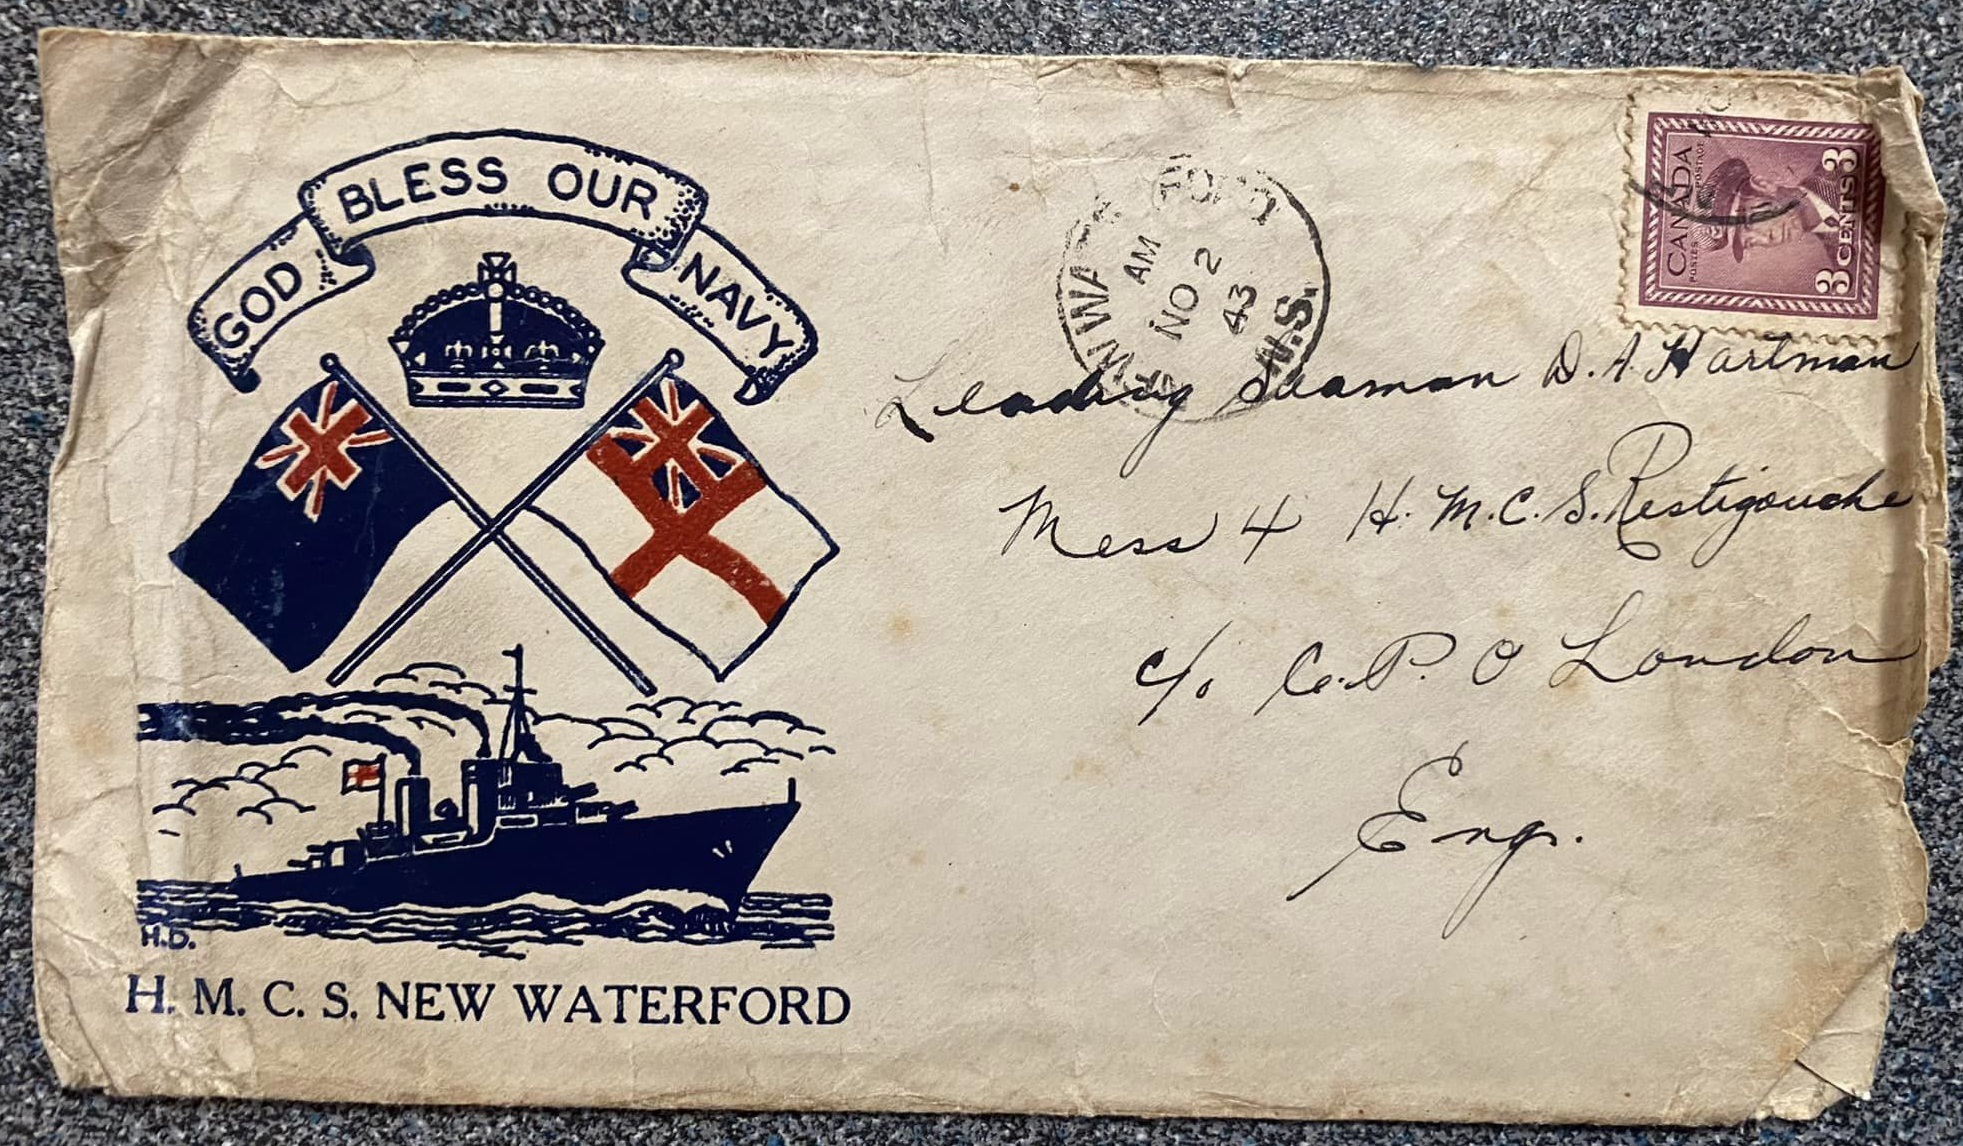 GOD BLESS OUR NAVY
H.D.
H. M. C. S. NEW WATERFORD
AM
NO 2
43
N.S.
CANADA
POSTES POSTAGE
3 CENTS 3
Leading Seaman D. A. Hartman
Mess 4 H. M. C. S. Restigouche
c/o G. P. O London
Eng.